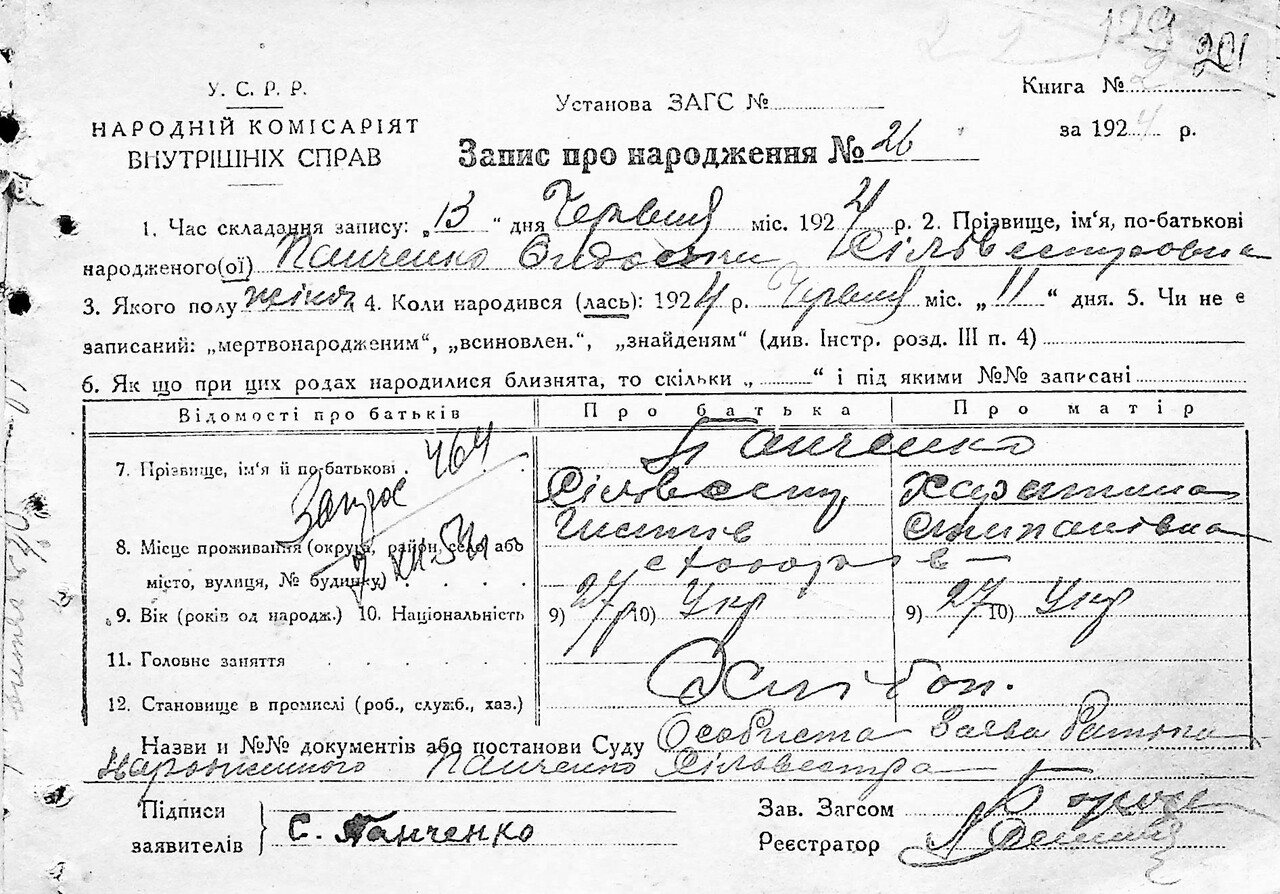 129
2 201
У. С. Р. Р.
НАРОДНІЙ КОМІСАРІЯТ
ВНУТРІШНІХ СПРАВ
Установа ЗАГС №
Книга № 2
за 1924 р.
Запис про народження № 26
1. Час складання запису: „13“ дня Червня міс. 1924 р. 2. Прізвище, ім'я, по-батькові
народженого(ої) Панченко Сілвестровна
3. Якого полу жіноч 4. Коли народився (лась): 1924 р. Червня міс. „11“ дня. 5. Чи не є
записаний: „мертвонародженим“, „всиновлен.“, „знайденям“ (див. Інстр. розд. III п. 4)
6. Як що при цих родах народилися близнята, то скільки „ “ і під якими №№ записані
Відомості про батьків Про батька Про матір
7. Прізвище, ім'я й по-батькові Панченко
464
Запрос
Сілвестр Харитина
Степанівна
8. Місце проживання (округа, район, село або
місто, вулиця, № будинку)
9. Вік (років од народж.) 10. Національність 9) 27 р 10) Укр 9) 27 10) Укр
11. Головне заняття
12. Становище в промислі (роб., служб., хаз.)
Назви и №№ документів або постанови Суду Особиста Заява Батька
Народженного Панченко Сілвестра
Підписи
заявителів
С. Панченко
Зав. Загсом
Реєстратор